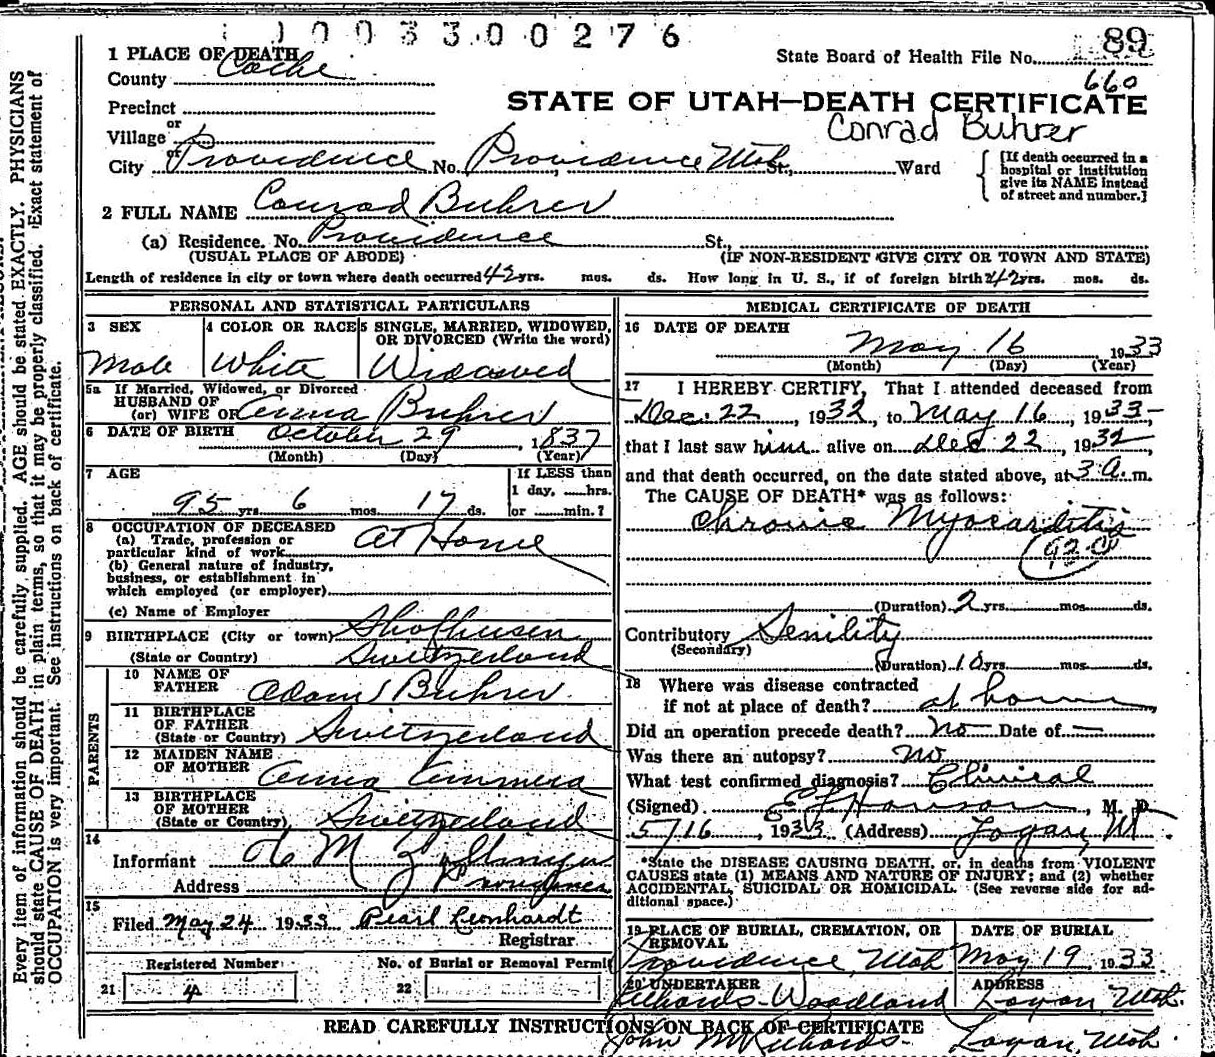 1003300276
1 PLACE OF DEATH
County Cache
State Board of Health File No. 89
660
Precinct
STATE OF UTAH—DEATH CERTIFICATE
Conrad Buhrer
or
Village
or
City Providence No. Providence Utah St., Ward
[If death occurred in a
hospital or institution
give its NAME instead
of street and number.]
2 FULL NAME Conrad Buhrer
(a) Residence. No. Providence St.,
(USUAL PLACE OF ABODE) (IF NON-RESIDENT GIVE CITY OR TOWN AND STATE)
Length of residence in city or town where death occurred 42 yrs. mos. ds. How long in U. S., if of foreign birth 42 yrs. mos. ds.
PERSONAL AND STATISTICAL PARTICULARS
3 SEX
Male
4 COLOR OR RACE
White
5 SINGLE, MARRIED, WIDOWED,
OR DIVORCED (Write the word)
Widowed
5a If Married, Widowed, or Divorced
HUSBAND OF
(or) WIFE OF Anna Buhrer
6 DATE OF BIRTH October 29, 1837
(Month) (Day) (Year)
7 AGE
95 yrs. 6 mos. 17 ds.
If LESS than
1 day, hrs.
or min.?
8 OCCUPATION OF DECEASED
(a) Trade, profession or
particular kind of work At Home
(b) General nature of industry,
business, or establishment in
which employed (or employer)
(c) Name of Employer
9 BIRTHPLACE (City or town) Shofhusen
(State or Country) Switzerland
PARENTS
10 NAME OF
FATHER Adam Buhrer
11 BIRTHPLACE
OF FATHER
(State or Country) Switzerland
12 MAIDEN NAME
OF MOTHER Anna
13 BIRTHPLACE
OF MOTHER
(State or Country) Switzerland
14
Informant
Address Providence
15
Filed May 24 1933 Pearl Leonhardt
Registrar
Registered Number No. of Burial or Removal Permit
21 4 22
MEDICAL CERTIFICATE OF DEATH
16 DATE OF DEATH
May 16 1933
(Month) (Day) (Year)
17 I HEREBY CERTIFY, That I attended deceased from
Dec. 22, 1932, to May 16, 1933
that I last saw him alive on Dec 22, 1932
and that death occurred, on the date stated above, at 3 a. m.
The CAUSE OF DEATH* was as follows:
Chronic Myocarditis
(Duration) 2 yrs. mos. ds.
Contributory Senility
(Secondary)
(Duration) 10 yrs. mos. ds.
18 Where was disease contracted
if not at place of death? at home
Did an operation precede death? No Date of —
Was there an autopsy? no
What test confirmed diagnosis? Clinical
(Signed) , M. D.
5/16, 1933 (Address) Logan, Ut.
*State the DISEASE CAUSING DEATH, or, in deaths from VIOLENT
CAUSES state (1) MEANS AND NATURE OF INJURY; and (2) whether
ACCIDENTAL, SUICIDAL OR HOMICIDAL. (See reverse side for ad-
ditional space.)
19 PLACE OF BURIAL, CREMATION, OR
REMOVAL
Providence, Utah
DATE OF BURIAL
May 19 1933
20 UNDERTAKER
Richards-Woodland
John M Richards
ADDRESS
Logan, Utah.
Logan, Utah
READ CAREFULLY INSTRUCTIONS ON BACK OF CERTIFICATE
Every item of information should be carefully supplied. AGE should be stated EXACTLY. PHYSICIANS
should state CAUSE OF DEATH in plain terms, so that it may be properly classified. Exact statement of
OCCUPATION is very important. See instructions on back of certificate.